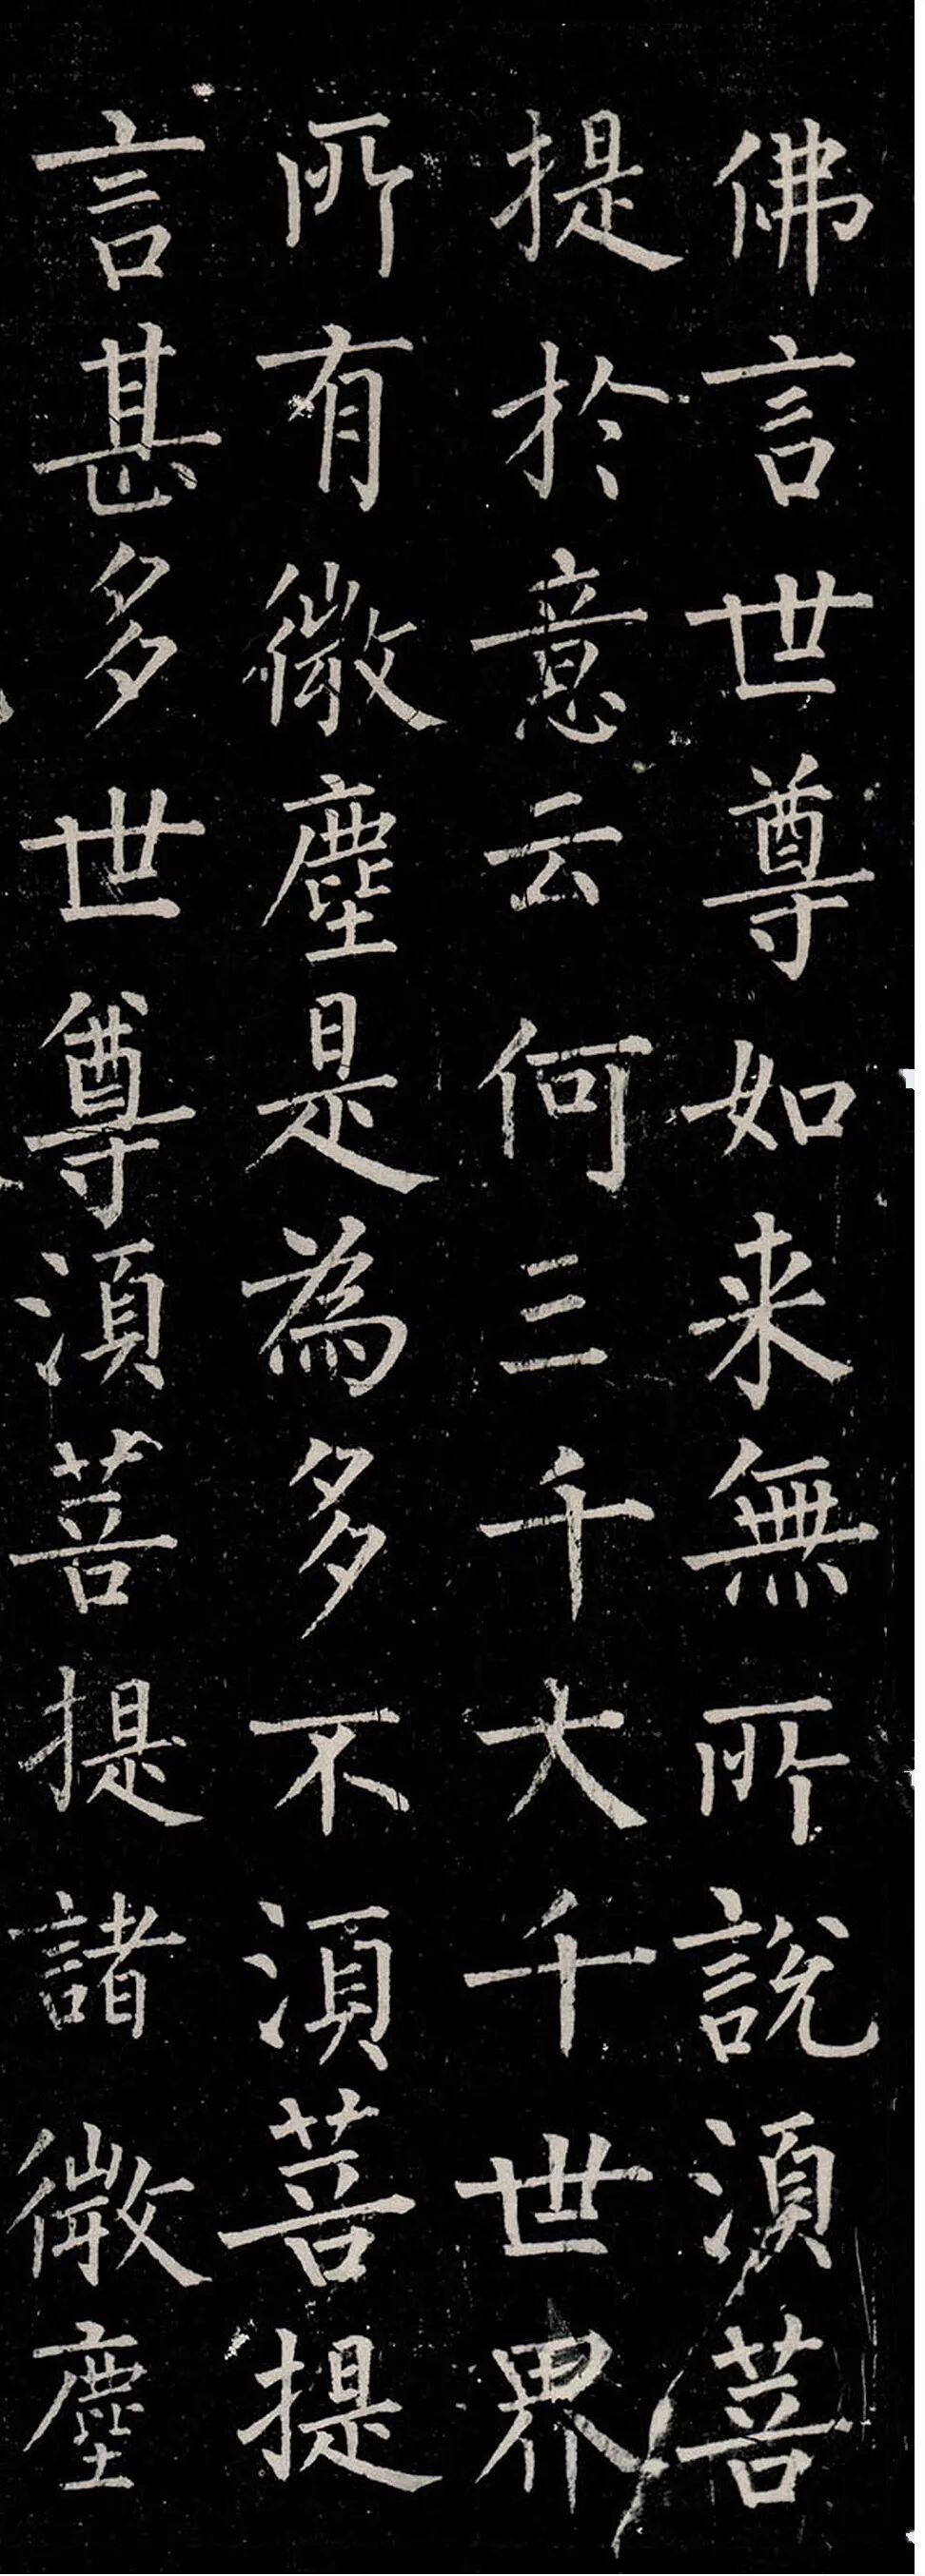 佛言世尊如来無所說湏菩
提於意云何三千大千世界
所有微塵是為多不湏菩提
言甚多世尊湏菩提諸微塵